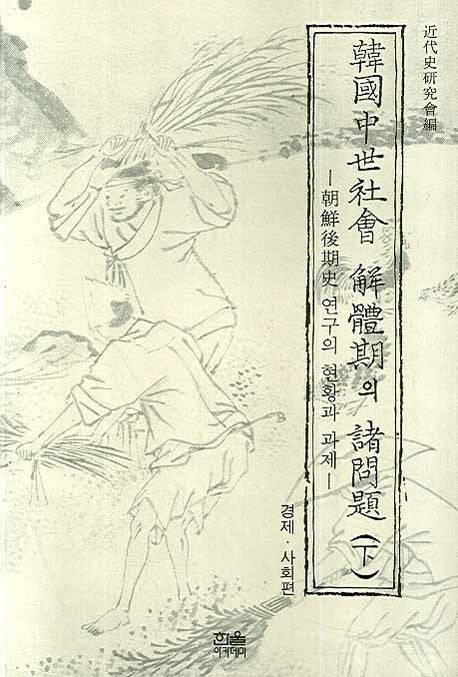 近代史硏究會編
韓國中世社會 解體期의 諸問題 (下)
—朝鮮後期史 연구의 현황과 과제—
경제·사회편
한울
아카데미